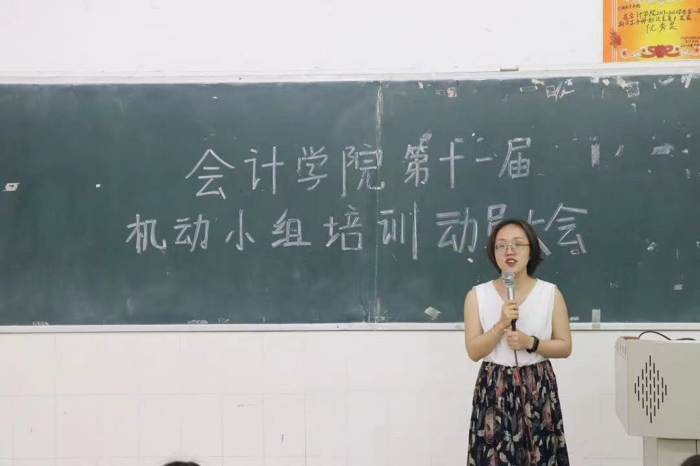 优秀奖
会计学院第十一届
机动小组培训动员大会